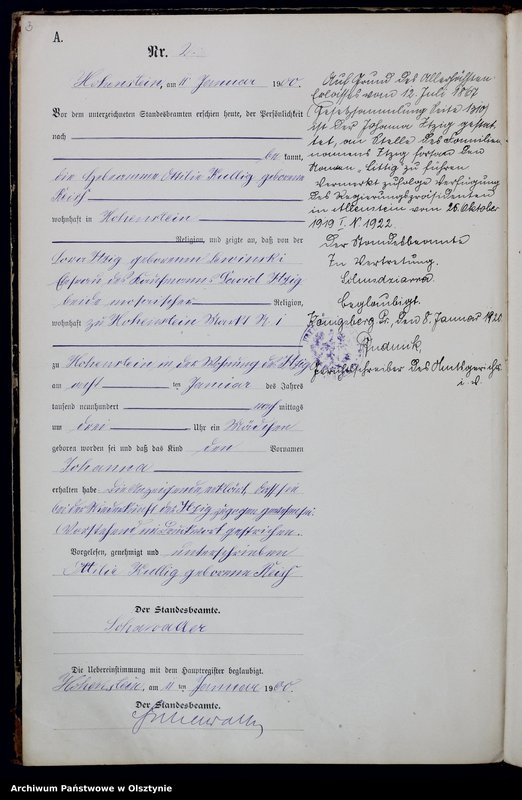 A.
Nr. 2
Hohenstein, am 11 Januar 1900.
Vor dem unterzeichneten Standesbeamten erschien heute, der Persönlichkeit
nach
be kannt,
die Hebeamme Ottilie Kullig geborene
Reich
wohnhaft in Hohenstein
Religion, und zeigte an, daß von der
Itzig geborenen Lewinski
Ehefrau des Kaufmanns David Itzig
beide mosaischer Religion,
wohnhaft zu Hohenstein Markt N. 1
zu Hohenstein in der Wohnung der Itzig
am acht ten Januar des Jahres
tausend neunhundert nach mittags
um drei Uhr ein Mädchen
geboren worden sei und daß das Kind den Vornamen
Johanna
erhalten habe. Die Anzeigende erklärt, daß sie
bei der Niederkunft der Itzig zugegen gewesen sei.
Vorstehend ein Druckwort gestrichen.
Vorgelesen, genehmigt und unterschrieben
Ottilie Kullig geborene Reich
Der Standesbeamte.
Die Uebereinstimmung mit dem Hauptregister beglaubigt.
Hohenstein, am 11 ten Januar 1900.
Der Standesbeamte.
Auf Grund des Allerhöchsten
Erlasses vom 12. Juli 1867
(Gesetzsammlung Seite 1310)
ist der Johanna Itzig gestat-
tet, an Stelle des Familien-
namens Itzig fortan den
Namen „Ittig" zu führen.
Vermerkt zufolge Verfügung
des Regierungspräsidenten
in Allenstein vom 25. Oktober
1919 I. N 1922.
Der Standesbeamte
In Vertretung.
beglaubigt.
Königsberg Pr. den 8. Januar 1920
Rudnik
Gerichtsschreiber des Amtsgerichts
i. V.
Archiwum Państwowe w Olsztynie